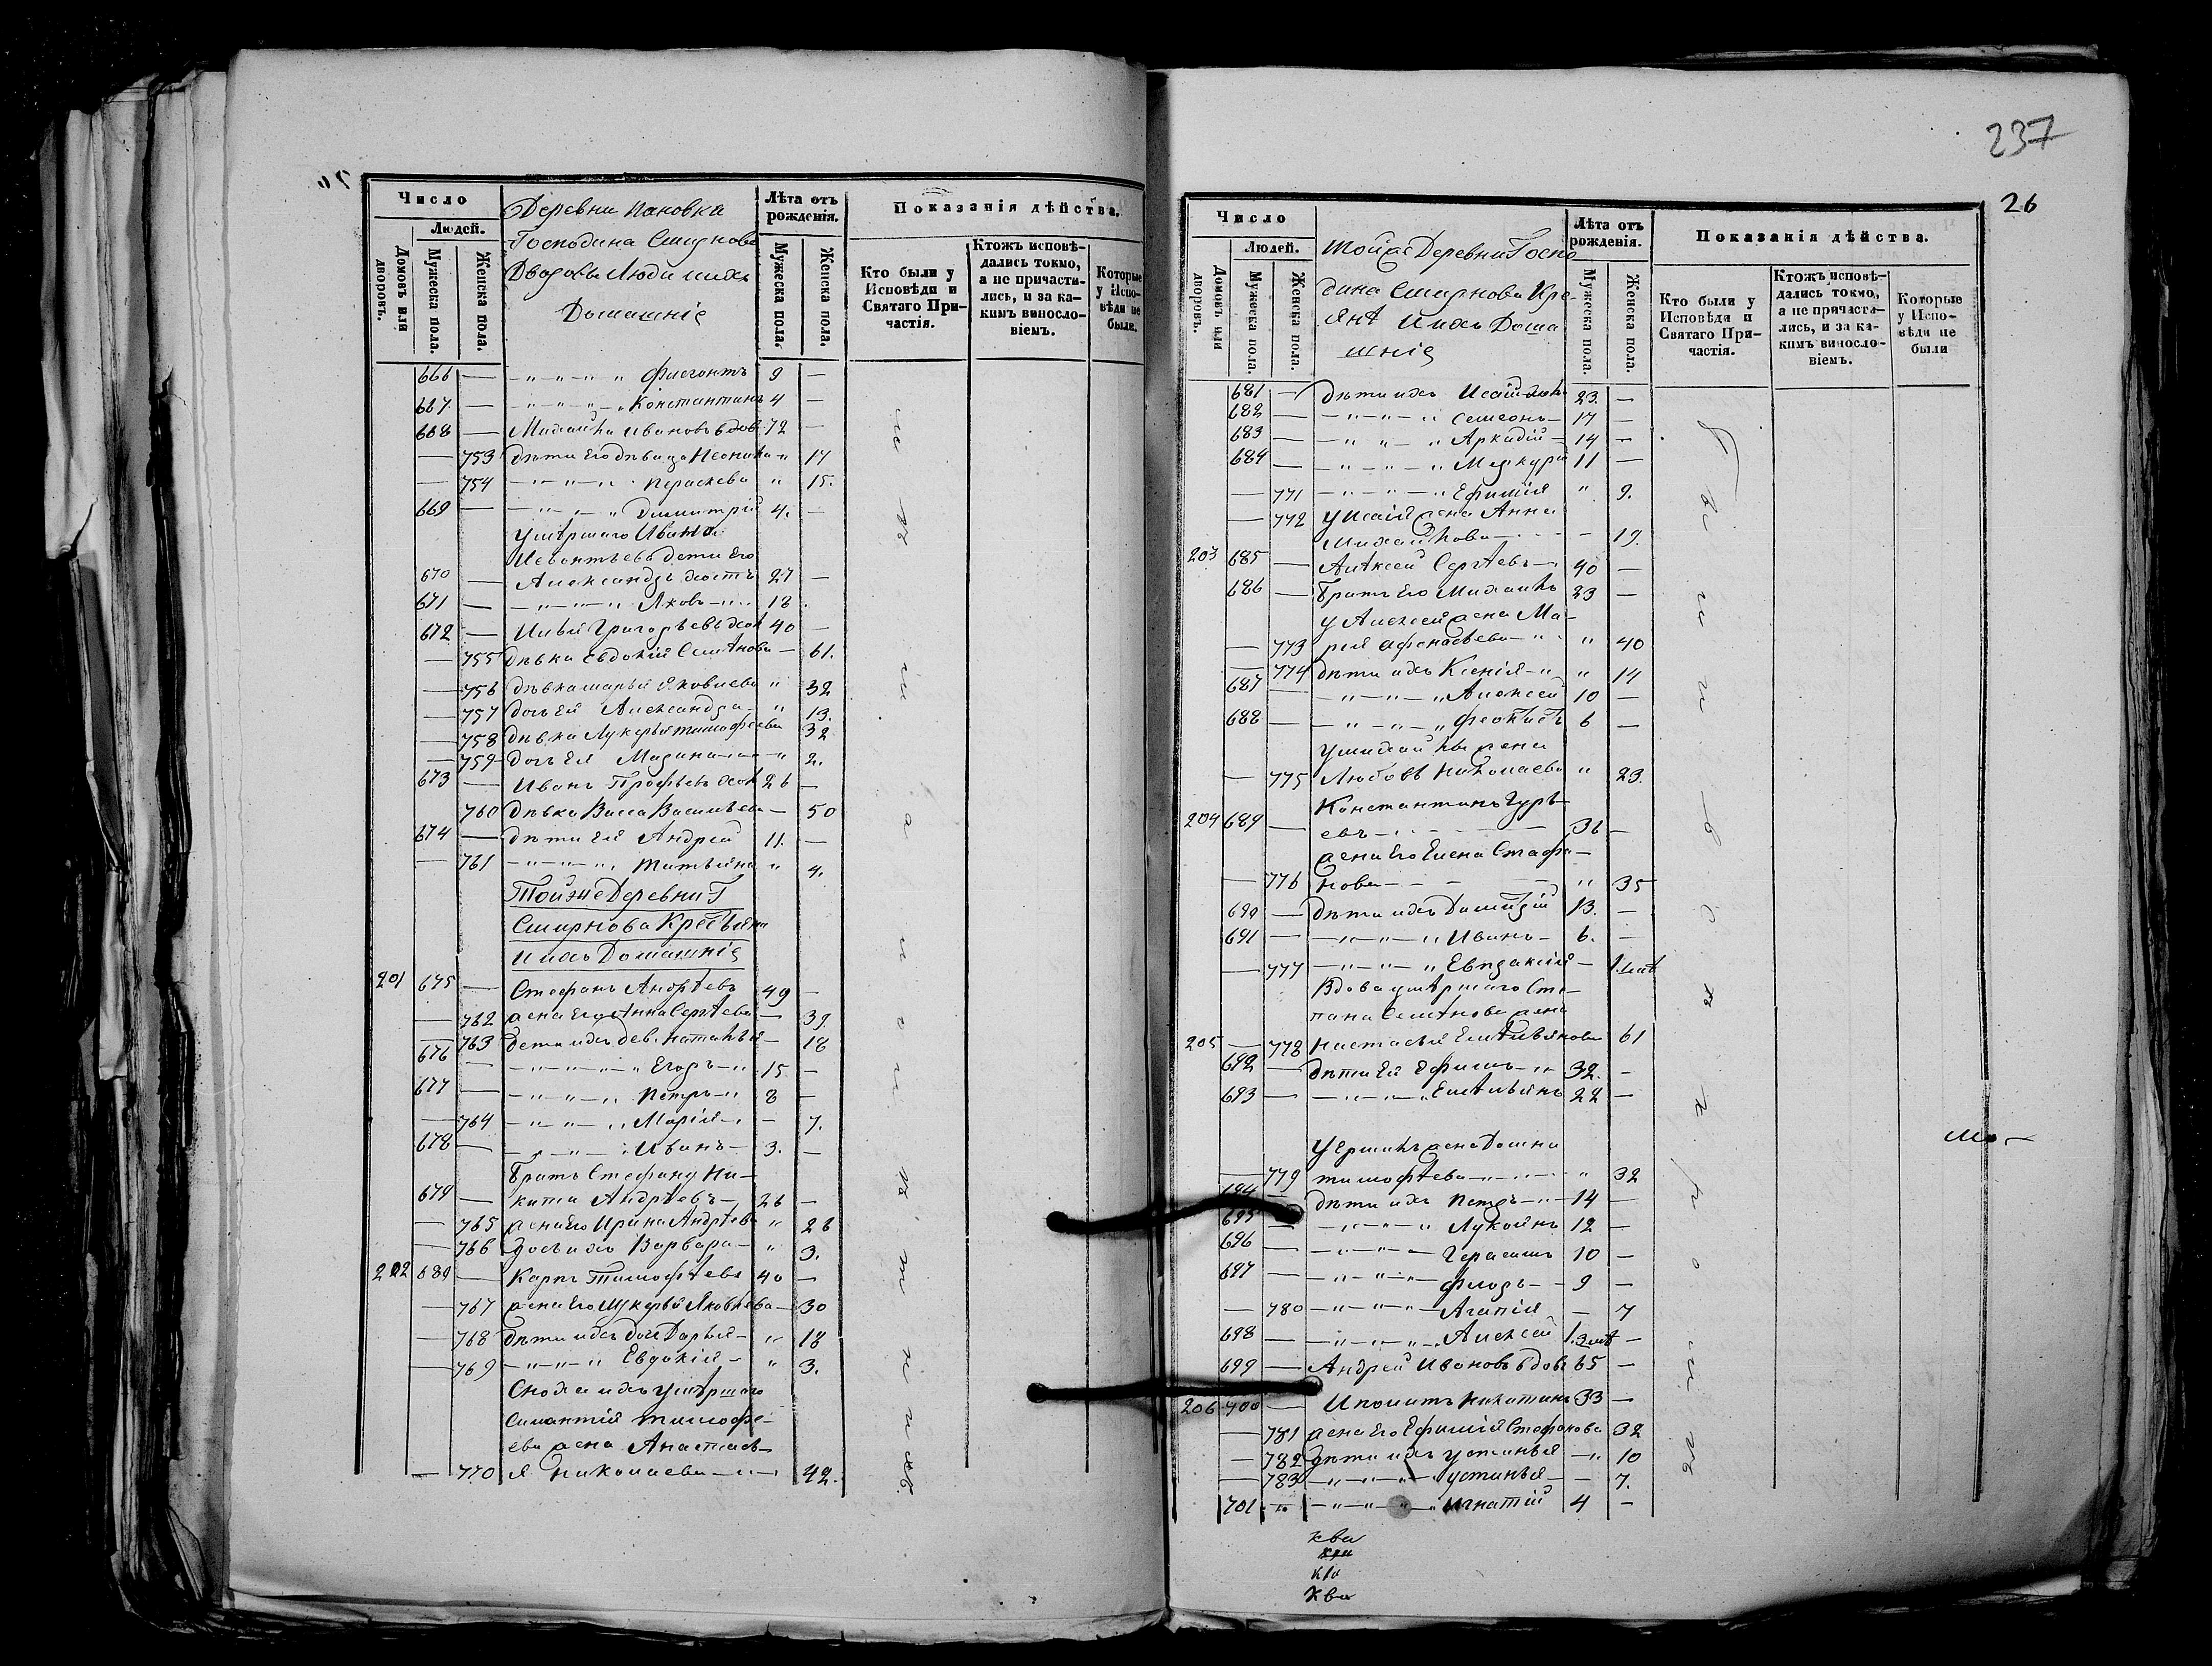 Число
Людей.
Домовъ или дворовъ.
Мужеска пола.
Женска пола.
Деревни Пановка
Господина Смирнова
Дворовы Люди и ихъ
Домашнiе
Лѣта отъ рожденiя.
Мужеска пола.
Женска пола.
Показанiя дѣйства.
Кто были у Исповѣди и Святаго Причастiя.
Ктожъ исповѣдались токмо, а не причастились, и за какимъ винословiемъ.
Которые у Исповѣди не были.
666 — — „ — „ — „ Флегонтъ 9 —
667. — — „ — „ — „ Константинъ 4 —
668 — Михайла Ивановъ вдов 72 —
— 753 дѣти его дѣвица Неонила „ 17
— 754 — „ — „ — „ Параскева „ 15.
669 — — „ — „ Димитрiй 4. —
умершаго Ивана
Леонтьевъ дети Его
670 — Александръ холстъ 27 —
671 — — „ — „ — „ Яковъ — „ 18
672 — Илья Григорьевъ хол 40 —
— 755 дѣвка Евдокiя Семѣнова — 61.
— 756 дѣвка марья Яковлева „ 32
— 757 дочь ея Александра „ 13.
— 758 дѣвка Лукерья тимофеева 32
— 759 дочь Ея Марина — „ 2.
673 — Иванъ Профьевъ хол 26 —
760 дѣвка Васса Васильева — 50
674 — дѣти Ея Андрей 11. —
— 761 — „ — „ — „ Татьяна „ 4.
Той же Деревни Г
Смирнова Крестьяне
и ихъ Домашнiе
201 675 — Стефанъ Андрѣевъ 49 —
— 762 жена его Анна Сергѣева — 39.
— 763 дети ихъ дев. Наталья — 18
676 — — „ — „ — „ Егоръ — „ 15 —
677 — — „ — „ — „ Петръ — „ 8 —
— 764 — „ — „ — „ Марiя — „ — 7.
678 — — „ — „ — „ Иванъ — 3. —
братъ Стефану Ни-
679 — кита Андрѣевъ — 26 —
— 765 жена Его Ирина Андрѣева „ 26
— 766 дочь ихъ Варвара — „ 3.
202 680 — Карпъ Тимофѣевъ 40 —
— 767 жена Его Лукерья Яковлева — 30
— 768 дѣти ихъ доч Дарья — „ 18
— 769 — „ — „ — „ Евдокiя — „ 3.
Сноха ихъ умѣршаго
тимофе-
ева жена Анастась-
— 770 я Николаева — „ — 42.
237
26
Число
Людей.
Домовъ или дворовъ.
Мужеска пола.
Женска пола.
Той же Деревни Госпо
дина Смирнова Кре-
янѣ и ихъ Дома
шнiе
Лѣта отъ рожденiя.
Мужеска пола.
Женска пола.
Показанiя дѣйства.
Кто были у Исповѣди и Святаго Причастiя.
Ктожъ исповѣдались токмо, а не причастились, и за какимъ винословiемъ.
Которые у Исповѣди не были
681 — Дѣти ихъ Исаiя 23. —
682 — — „ — „ — „ Семеонъ — 17 —
683 — — „ — „ — „ Аркадiй — 14 —
684 — — „ — „ — „ Меркурiй 11 —
— 771 — „ — „ — „ Ефимiя „ 9.
— 772 у Исаiя жена Анна
Михайлова — — — 19.
203 685 — Алѣксей Сергѣевъ — 40 —
686 — Братъ Его Михаилъ 23 —
у Алексея жена Ма-
— 773 рiя Афонасьева — „ „ 40
— 774 дѣти ихъ Ксенiя — „ „ 14
687 — — „ — „ — „ Алексей 10 —
688 — — „ — „ — „ Феоктистъ 6 —
у михайлы жена
— 775 Любовь Николаева „ 23.
Константинъ Гурь-
204 689 — евъ — 36 —
жена его Елена Стефа-
— 776 нова — — — „ 35
690 — дѣти ихъ Димитрiй 13. —
691 — — „ — „ — „ Иванъ — 6. —
— 777 — „ — „ — „ Евпраксiя —
Вдова умѣршаго Сте-
пана Семѣнова жена
205 — 778 Настасья Емѣльянова 61
692 — дѣти Ея Ефимъ — „ 32. —
693 — — „ — „ — „ Емѣльянъ 22 —
у жена Домна
— 779 тимофѣева — „ — „ „ 32
694 — дѣти ихъ Петръ — „ 14 —
695 — — „ — „ — „ Лукьянъ 12 —
696 — — „ — „ — Герасимъ 10 —
697 — — „ — „ — Флоръ — 9 —
— 780 — „ — „ — Агапiя — 7
698 — — „ — „ — „ Алексей
699 — Андрей Ивановъ вдов 65 —
206 700 — Иполитъ Никитинъ 33 —
— 781 жена Его Ефимiя Стефанова 32
— 782 дѣти ихъ устинья — „ 10
— 783 — „ — „ — „ устинья — — 7.
701 — — „ — „ — „ Игнатiй 4 —
ква
ква